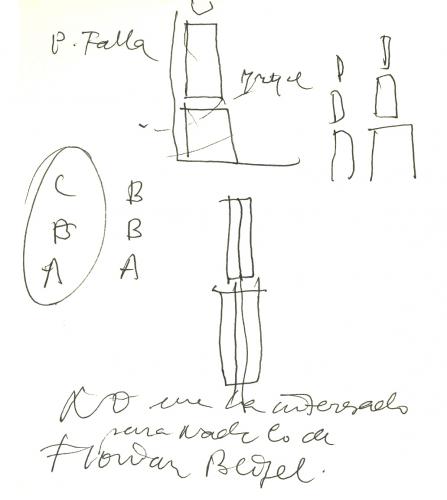 P. Falla
C B
B B
A A
NO me ha interesado
para nada lo de
Florian Beigel.